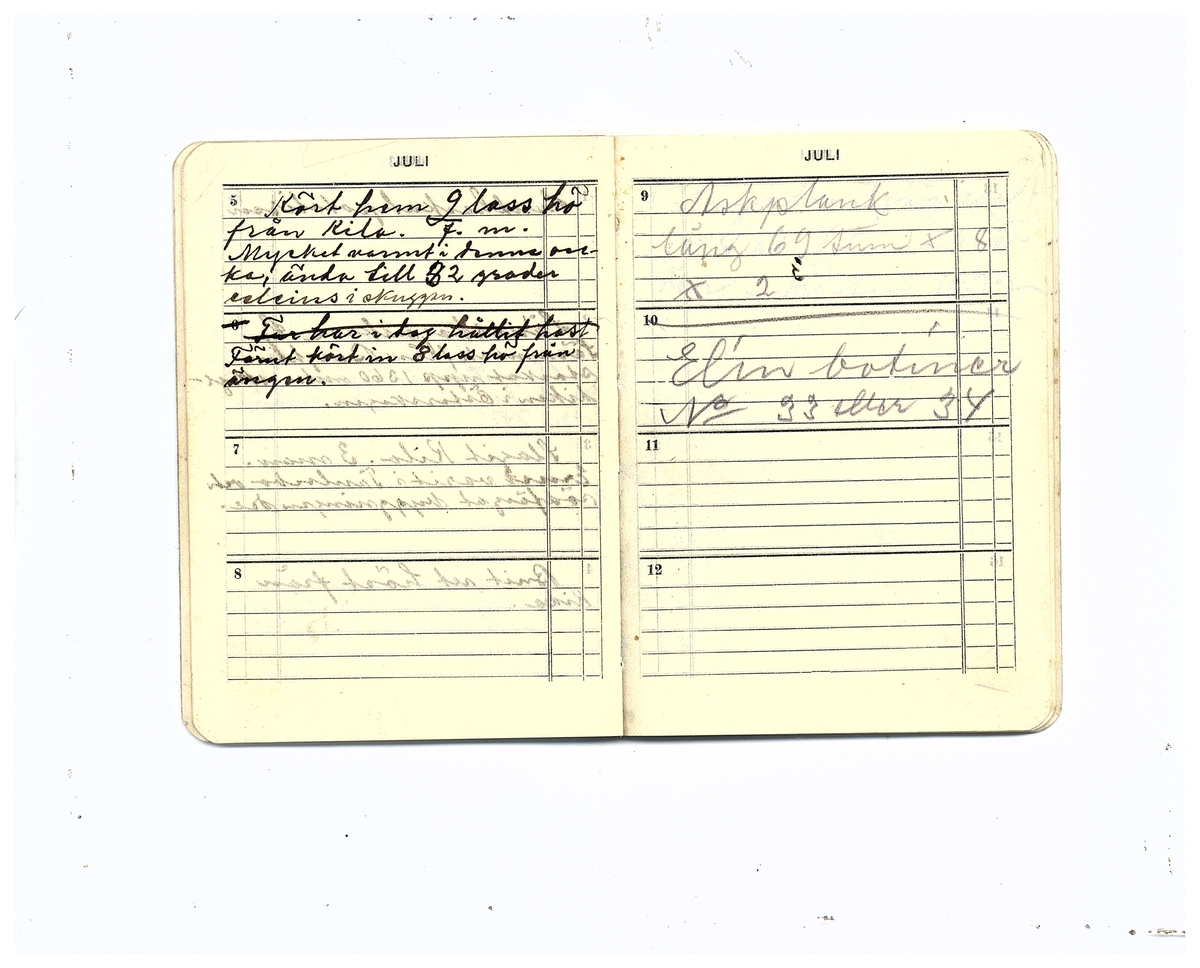 JULI
5
Kört hem 9 lass hö
från Kila. F. m.
Mycket varmt i denna vec-
ka, ända till 32 grader
celcius i skuggan.
6
har i dag hållit
kört in 8 lass hö från
ängen.
7
8
JULI
9
Askplank
lång 69 tum x 8
x 2
10
Elin botiner
No 33 eller 34
11
12